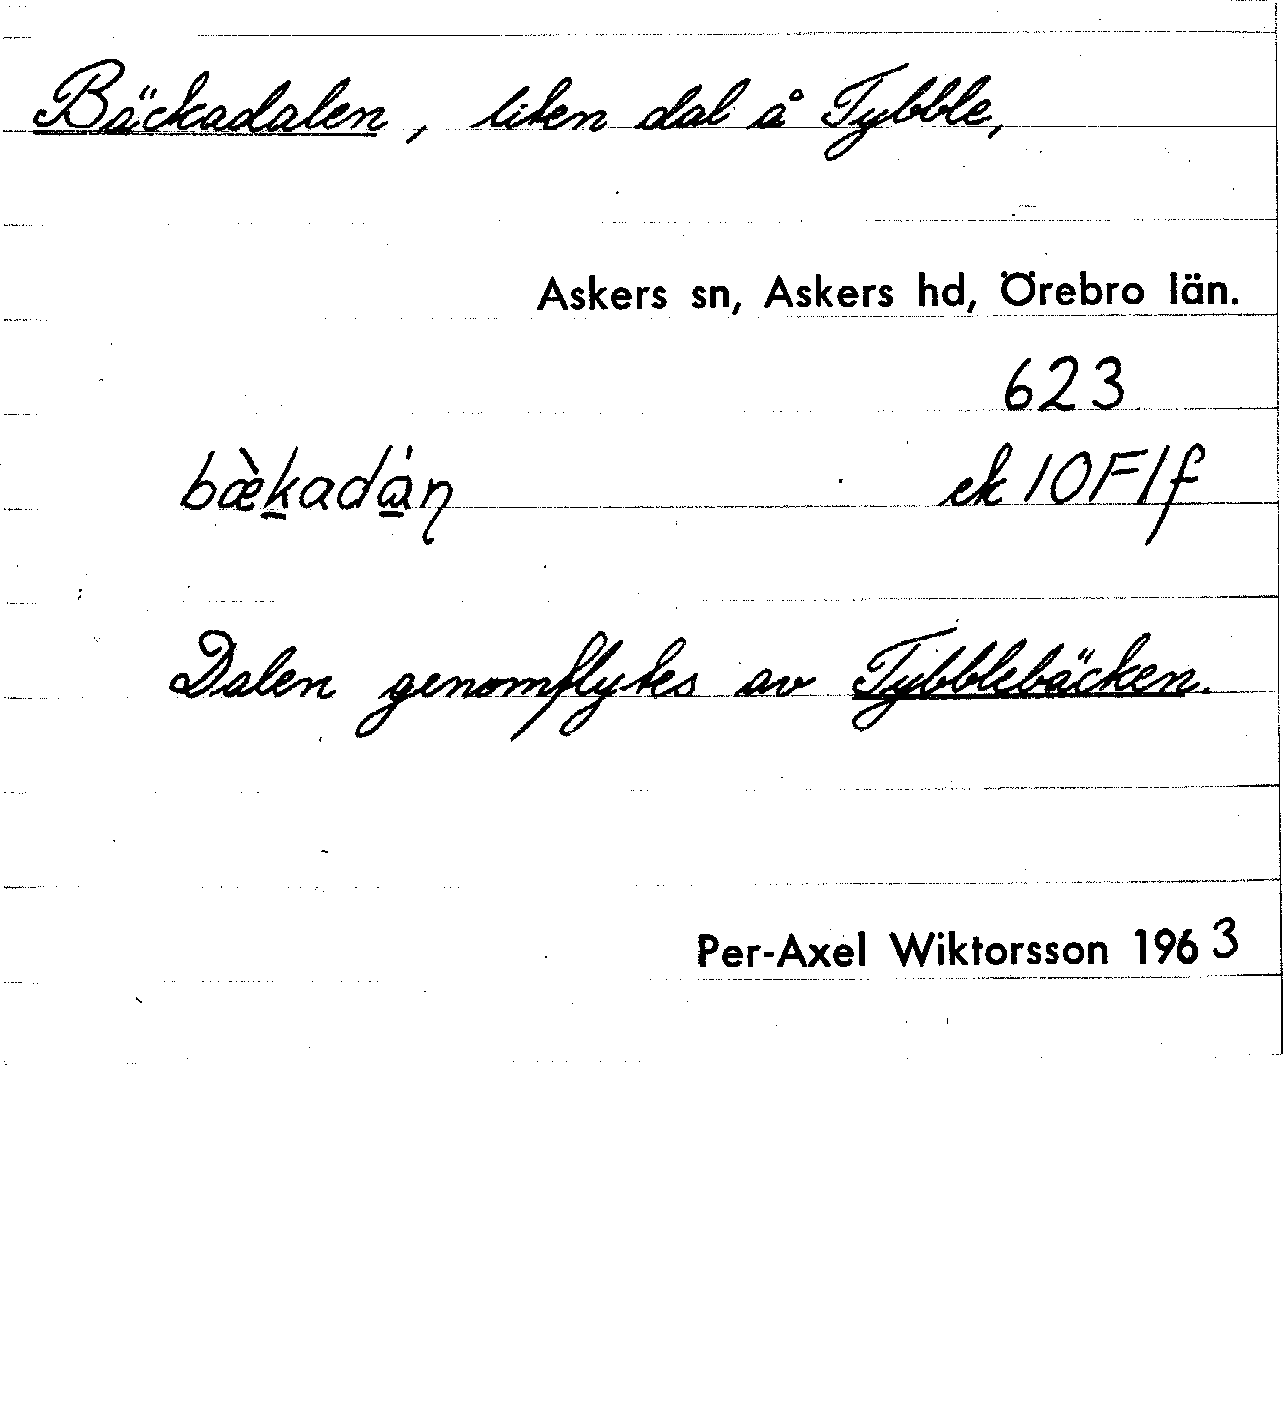 Bäckadalen, liten dal å Tybble,
Askers sn, Askers hd, Örebro län.
623
bæ̀k̠ada̠̍ŋ ek 10F1f
Dalen genomflytes av Tybblebäcken.
Per-Axel Wiktorsson 1963